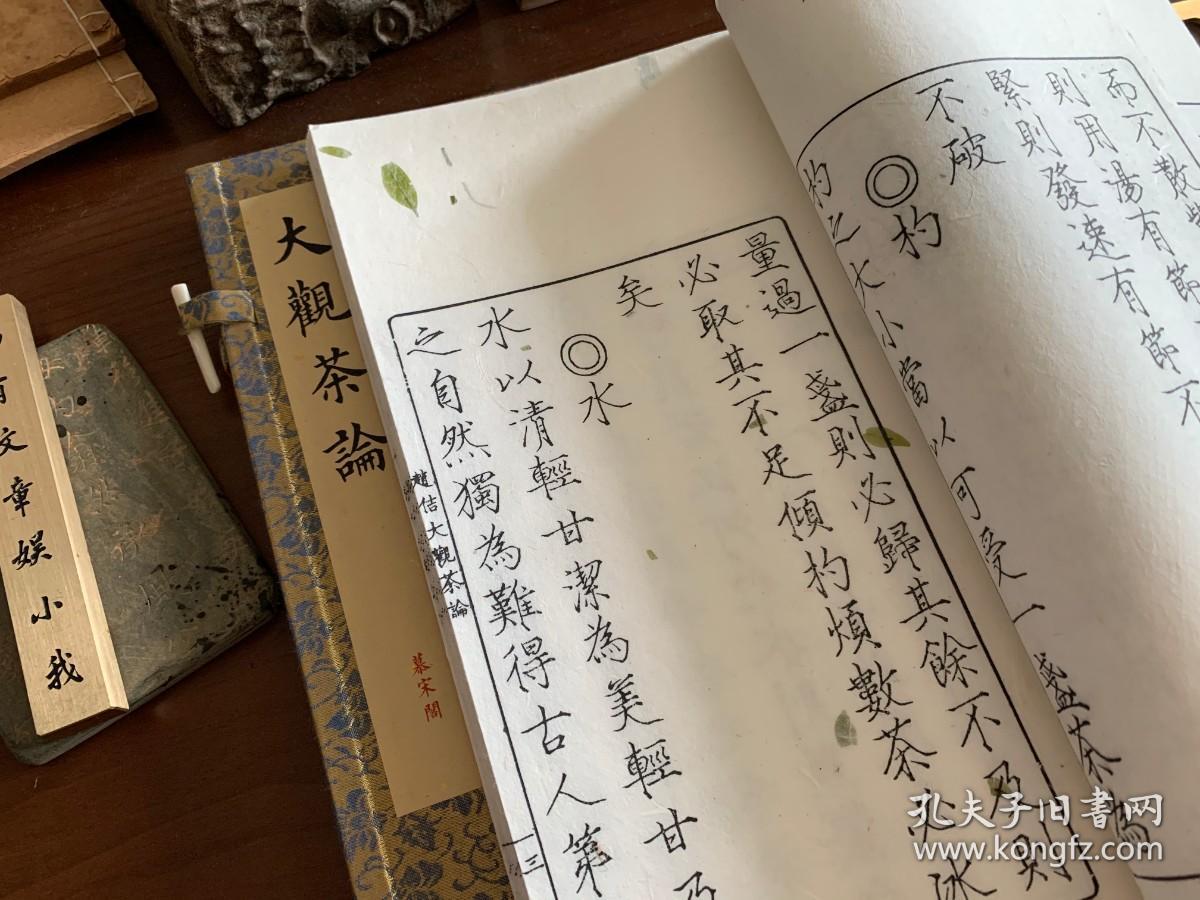 而不散
則用湯有節
緊則發速有節不
不破
◎杓
杓之大小當以可受一盞茶為
量過一盞則必歸其餘不及則
必取其不足傾杓煩數茶必冰
矣
◎水
水以清輕甘潔為美輕甘乃
之自然獨為難得古人第
趙佶大觀茶論
三
大觀茶論
慕宋閣
有文章娱小我
孔夫子旧書网
www.kongfz.com